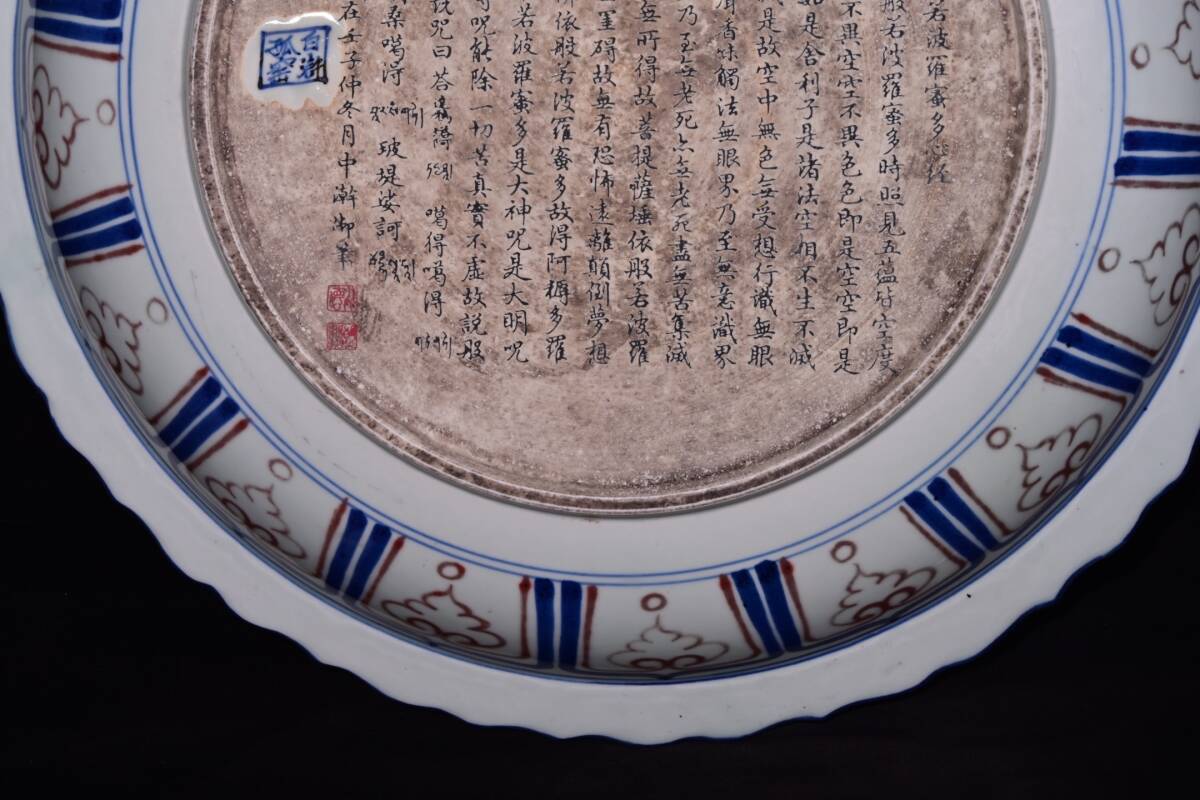 若波羅蜜多心經
般若波羅蜜多時照見五蘊皆空度
不異空空不異色色即是空空即是
如是舍利子是諸法空相不生不滅
是故空中無色無受想行識無眼
香味觸法無眼界乃至無意識界
乃至無老死亦無老死盡無苦集滅
無所得故菩提薩埵依般若波羅
罣礙故無有恐怖遠離顛倒夢想
依般若波羅蜜多故得阿耨多羅
若波羅蜜多是大神咒是大明咒
咒能除一切苦真實不虛故說般
說咒曰
噶得鳴得
桑噶得
玻堤娑訶
在壬子仲冬月中澣御筆